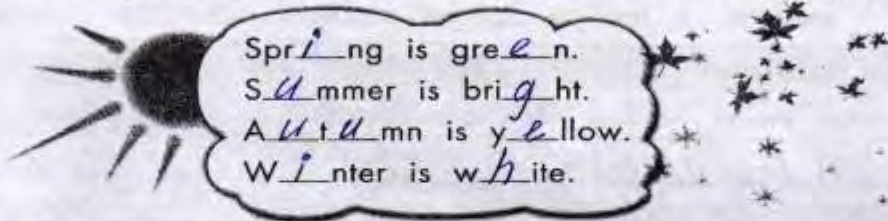 Spring is green.
Summer is bright.
Autumn is yellow.
Winter is white.